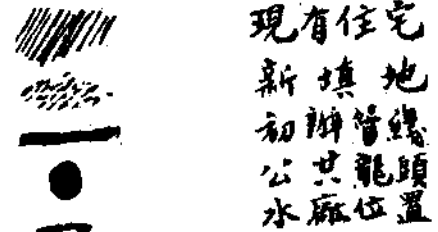 現有住宅
新填地
初辦管綫
公共龍頭
水廠位置